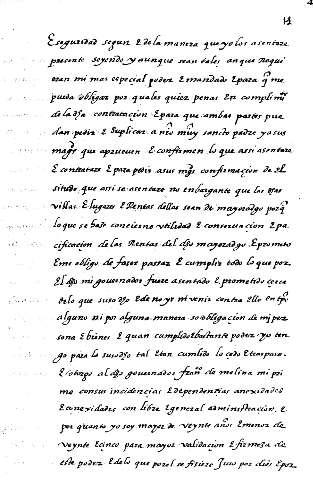 14
E seguridad segun E de la manera que yo los asentare
presente seyendo y aunque sean tales en que Requi
eran mi mas especial poder E mandado E para q̃ me
pueda obligar por quales quier penas En complimº
de la dha contratacion E para que ambas partes pue
dan pedir E suplicar a nrõ muy santo padre y a sus
magts que aprueuen E confirmen lo que assi asentare
E contratare E para pedir a sus mgts confirmacion de El
que ansi se asentare no enbargante que las dhas
villas E lugares E Rentas dellas sean de mayoradgo porq̃
lo que se haze conuiene a vtilidad E conseruacion E pa
cificacion de las Rentas del dho mayoradgo E prometo
E me obligo de fazer passar E cumplir todo lo que por
El dho mi gouernador fuere asentado E prometido cerca
de lo que suso dho E de no yr ni venir contra Ello en tpõ
alguno ni por alguna manera so obligacion de mi per
sona E bienes E quan cumplido E bastante poder yo ten
go para lo susodho tal E tan cumlido lo cedo E traspaso
E otorgo al dho gouernador franco de molina mi pri
mo con sus incidencias E dependencias anexidades
E conexidades con libre E general administracion. E
por quanto yo soy mayor de veynte años E menor de
veynte E cinco para mayor validacion E firmeza de
este poder E de lo que por el se fiziere Juro por dios E por